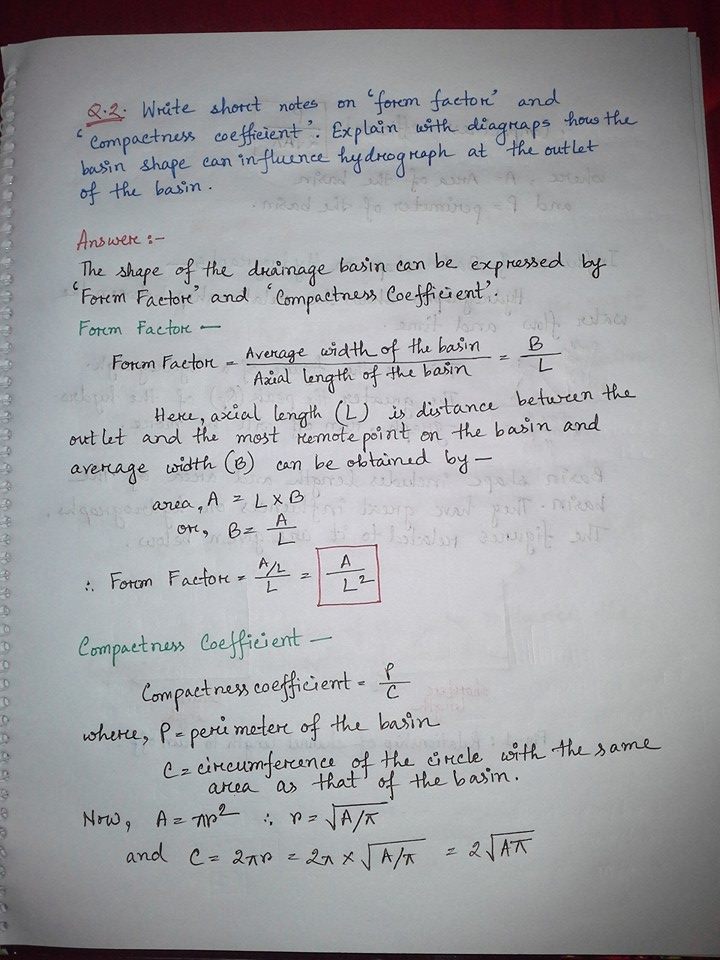 Q.2. Write short notes on 'form factor' and
'compactness coefficient'. Explain with diagraps how the
basin shape can influence hydrograph at the outlet
of the basin.
Answer :-
The shape of the drainage basin can be expressed by
'Form Factor' and 'Compactness Coefficient'.
Form Factor —
Form Factor = Average width of the basin / Axial length of the basin = B / L
Here, axial length (L) is distance between the
outlet and the most remote point on the basin and
average width (B) can be obtained by —
area, A = L × B
or, B = A / L
∴ Form Factor = A/L / L = A / L²
Compactness Coefficient —
Compactness coefficient = P / C
where, P = perimeter of the basin
C = circumference of the circle with the same
area as that of the basin.
Now, A = πr² ∴ r = √A/π
and C = 2πr = 2π × √A/π = 2√Aπ